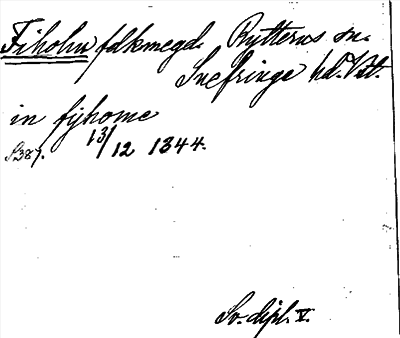 Fiholm fdkmegd. Rytterns sn.
Snefringe hd. Vstl.
in fijhome
S 387. 13/12 1344.
Sv. dipl. V.